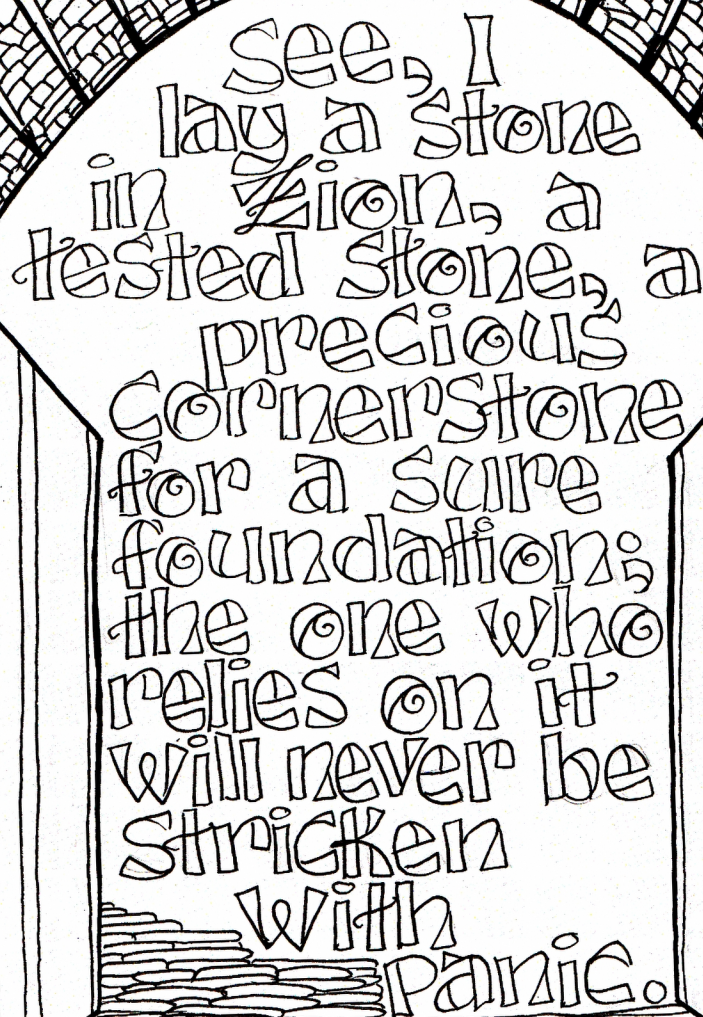 see, I
lay a stone
in Zion, a
tested stone, a
precious
cornerstone
for a sure
foundation;
the one who
relies on it
will never be
stricken
with
panic.